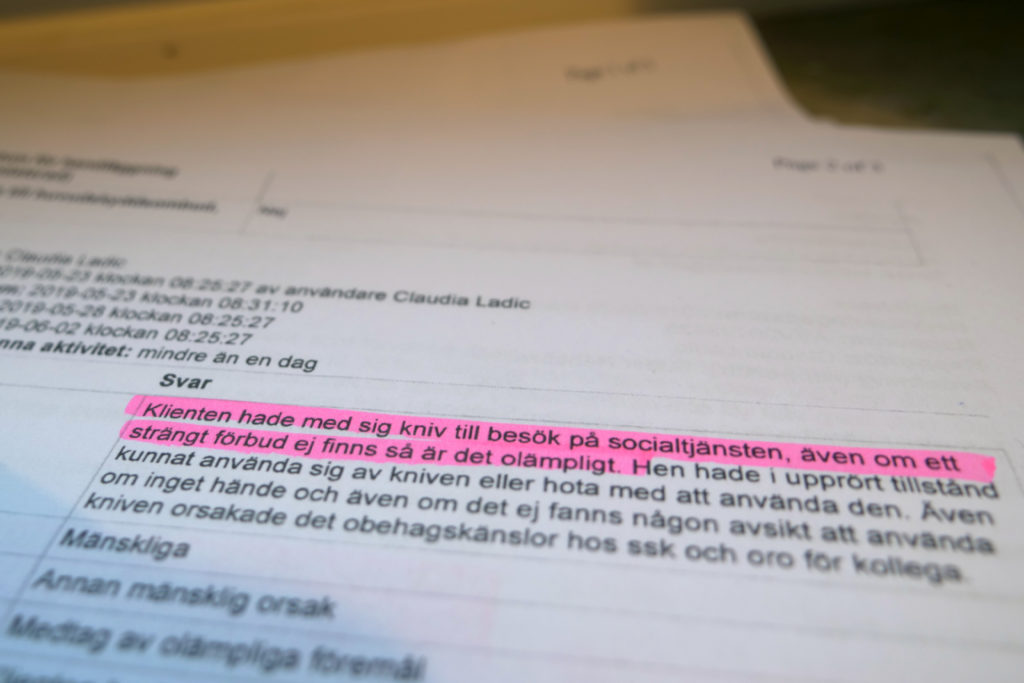 Page 1 of
Page 2 of
nej
Claudia Ladic
2019-05-23 klockan 08:25:27 av användare Claudia Ladic
2019-05-23 klockan 08:31:10
2019-05-28 klockan 08:25:27
19-06-02 klockan 08:25:27
nna aktivitet: mindre än en dag
Svar
Klienten hade med sig kniv till besök på socialtjänsten, även om ett
strängt förbud ej finns så är det olämpligt. Hen hade i upprört tillstånd
kunnat använda sig av kniven eller hota med att använda den. Även
om inget hände och även om det ej fanns någon avsikt att använda
kniven orsakade det obehagskänslor hos ssk och oro för kollega.
Mänskliga
Annan mänsklig orsak
Medtag av olämpliga föremål